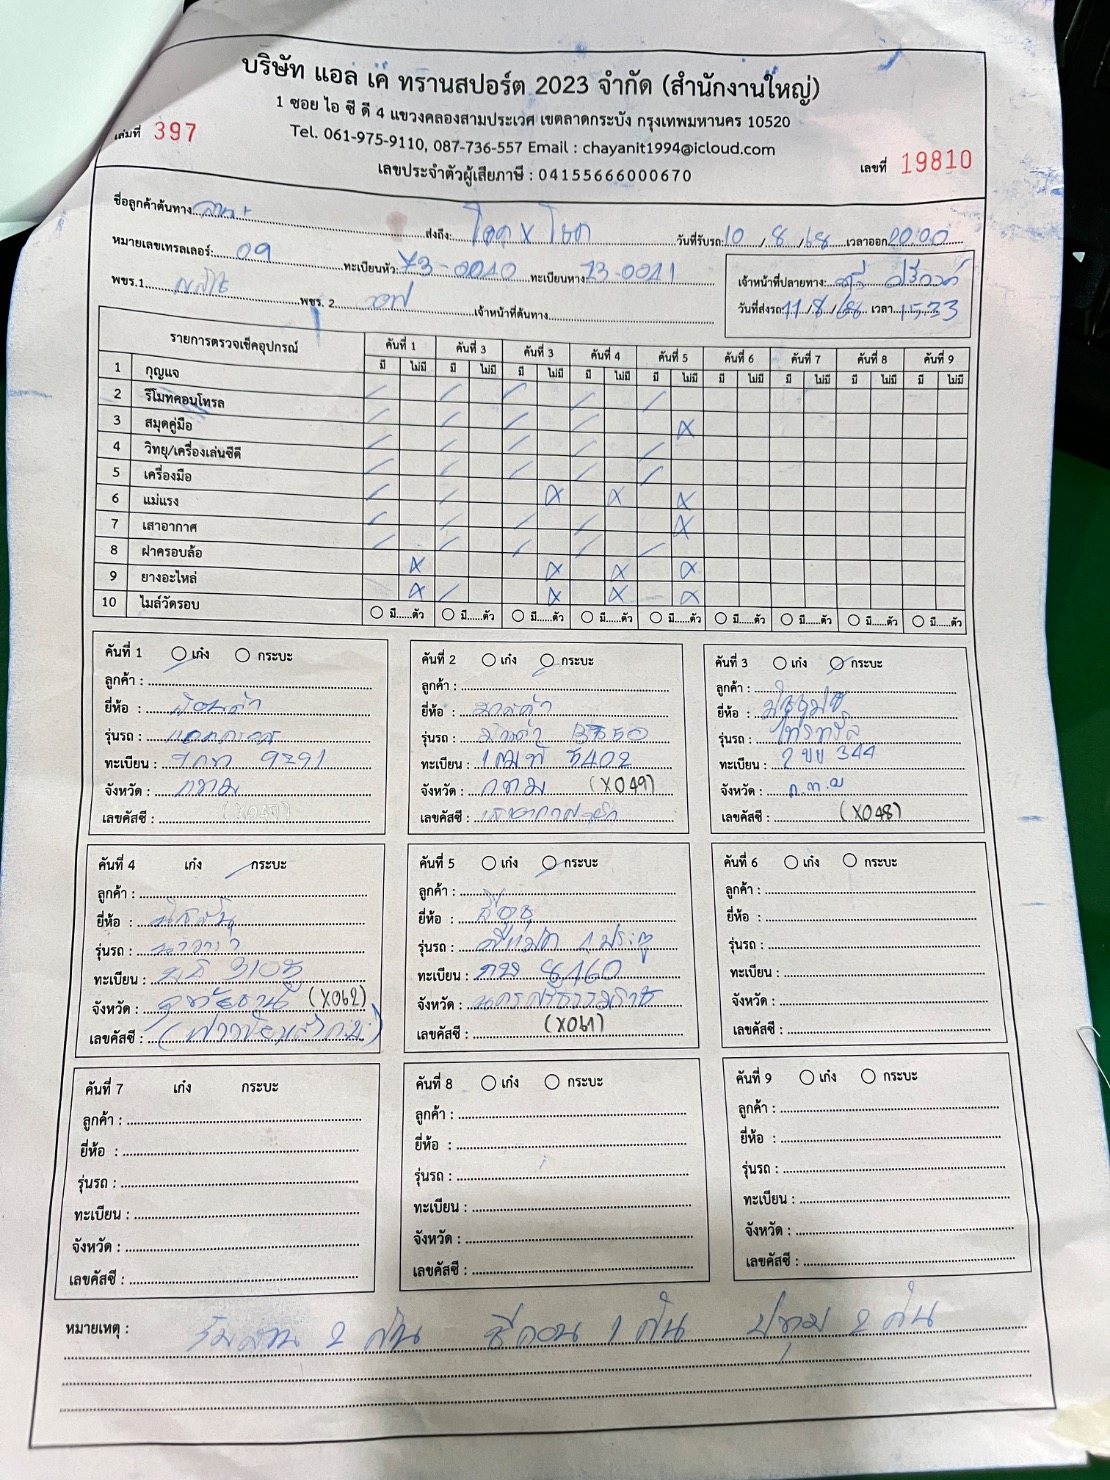 บริษัท แอล เค ทรานสปอร์ต 2023 จำกัด (สำนักงานใหญ่)
1 ซอย ไอ ซี ดี 4 แขวงคลองสามประเวศ เขตลาดกระบัง กรุงเทพมหานคร 10520
Tel. 061-975-9110, 087-736-557 Email : chayanit1994@icloud.com
เล่มที่ 397
เลขประจำตัวผู้เสียภาษี : 04155666000670
เลขที่ 19810
ชื่อลูกค้าต้นทาง ส่งถึง: วันที่รับรถ: 10 / 8 / 68 เวลาออก 20:00
หมายเลขเทรลเลอร์: 09 ทะเบียนหัว: 73-0040 ทะเบียนหาง 73-0041
เจ้าหน้าที่ปลายทาง:
พขร.1 พขร. 2 เจ้าหน้าที่ต้นทาง
วันที่ส่งรถ: 11 / 8 / 68 เวลา 15:33
รายการตรวจเช็คอุปกรณ์ คันที่ 1 คันที่ 3 คันที่ 3 คันที่ 4 คันที่ 5 คันที่ 6 คันที่ 7 คันที่ 8 คันที่ 9
มี ไม่มี มี ไม่มี มี ไม่มี มี ไม่มี มี ไม่มี มี ไม่มี มี ไม่มี มี ไม่มี มี ไม่มี
1 กุญแจ
2 รีโมทคอนโทรล
3 สมุดคู่มือ
4 วิทยุ/เครื่องเล่นซีดี
5 เครื่องมือ
6 แม่แรง
7 เสาอากาศ
8 ฝาครอบล้อ
9 ยางอะไหล่
10 ไมล์วัดรอบ
มี......ตัว มี......ตัว มี......ตัว มี......ตัว มี......ตัว มี......ตัว มี......ตัว มี......ตัว มี......ตัว
คันที่ 1 เก๋ง กระบะ
ลูกค้า :
ยี่ห้อ :
รุ่นรถ :
ทะเบียน : 9791
จังหวัด : กทม
เลขคัสซี :
คันที่ 2 เก๋ง กระบะ
ลูกค้า :
ยี่ห้อ : มาสด้า
รุ่นรถ :
ทะเบียน : 5402
จังหวัด : กทม (X049)
เลขคัสซี : เสาอากาศหัก
คันที่ 3 เก๋ง กระบะ
ลูกค้า :
ยี่ห้อ :
รุ่นรถ : ไทรทัน
ทะเบียน : 2 ขข 344
จังหวัด : ก.ท.ม
เลขคัสซี : (X048)
คันที่ 4 เก๋ง กระบะ
ลูกค้า :
ยี่ห้อ : นิสสัน
รุ่นรถ : นาวาร่า
ทะเบียน :
จังหวัด : อุทัยธานี (X062)
เลขคัสซี :
คันที่ 5 เก๋ง กระบะ
ลูกค้า :
ยี่ห้อ : อีซูซุ
รุ่นรถ : ดีแมค 4 ประตู
ทะเบียน : 8460
จังหวัด : นครศรีธรรมราช
เลขคัสซี : (X061)
คันที่ 6 เก๋ง กระบะ
ลูกค้า :
ยี่ห้อ :
รุ่นรถ :
ทะเบียน :
จังหวัด :
เลขคัสซี :
คันที่ 7 เก๋ง กระบะ
ลูกค้า :
ยี่ห้อ :
รุ่นรถ :
ทะเบียน :
จังหวัด :
เลขคัสซี :
คันที่ 8 เก๋ง กระบะ
ลูกค้า :
ยี่ห้อ :
รุ่นรถ :
ทะเบียน :
จังหวัด :
เลขคัสซี :
คันที่ 9 เก๋ง กระบะ
ลูกค้า :
ยี่ห้อ :
รุ่นรถ :
ทะเบียน :
จังหวัด :
เลขคัสซี :
หมายเหตุ : 2 คัน ซีคอน 1 คัน ปทุม 2 คัน